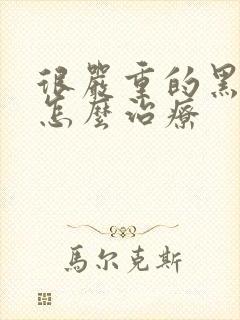 很嚴重的黑
怎麼治療
馬尔克斯